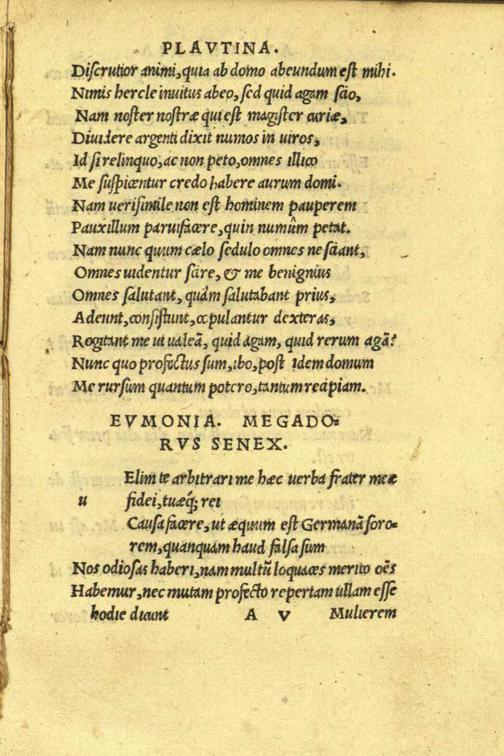 PLAVTINA.
Discrutior animi, quia ab domo abeundum est mihi.
Nimis hercle inuitus abeo, sed quid agam scio,
Nam noster nostræ qui est magister curiæ,
Diuidere argenti dixit numos in uiros,
Id si relinquo, ac non peto, omnes illico
Me suspicentur credo habere aurum domi.
Nam uerisimile non est hominem pauperem
Pauxillum paruifacere, quin numûm petat.
Nam nunc quum cælo sedulo omnes ne sciant,
Omnes uidentur scire, & me benignius
Omnes salutant, quàm salutabant prius,
Adeunt, consistunt, copulantur dexteras,
Rogitant me ut ualeã, quid agam, quid rerum agã?
Nunc quo profectus sum, ibo, post idem domum
Me rursum quantum potero, tantum recipiam.
EVMONIA. MEGADO=
RVS SENEX.
Elim te arbitrari me hæc uerba frater meæ
u fidei, tuæq; rei
Causa facere, ut æquum est Germanã soro=
rem, quanquam haud falsa sum
Nos odiosas haberi, nam multũ loquaces merito oẽs
Habemur, nec mutam profecto repertam ullam esse
hodie dicunt A V Mulierem